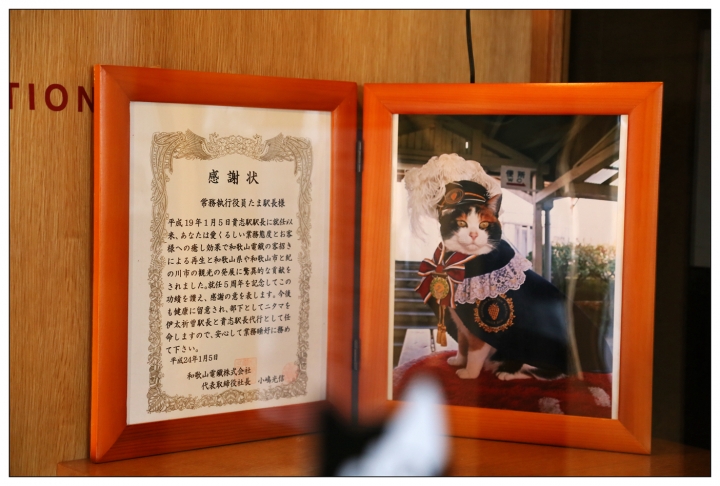 TION
感謝状
常務執行役員たま駅長様
平成19年1月5日貴志駅駅長に就任以
来、あなたは愛くるしい業務態度とお客
様への癒し効果で和歌山電鐵の客招き
による再生と和歌山県や和歌山市と紀
の川市の観光の発展に驚異的な貢献を
されました。就任5周年を記念してこの
功績を讃え、感謝の意を表します。今後
も健康に留意され、部下としてニタマを
伊太祈曽駅長と貴志駅長代行として任
命しますので、安心して業務睡好に務め
て下さい。
平成24年1月5日
和歌山電鐵株式会社
代表取締役社長 小嶋光信